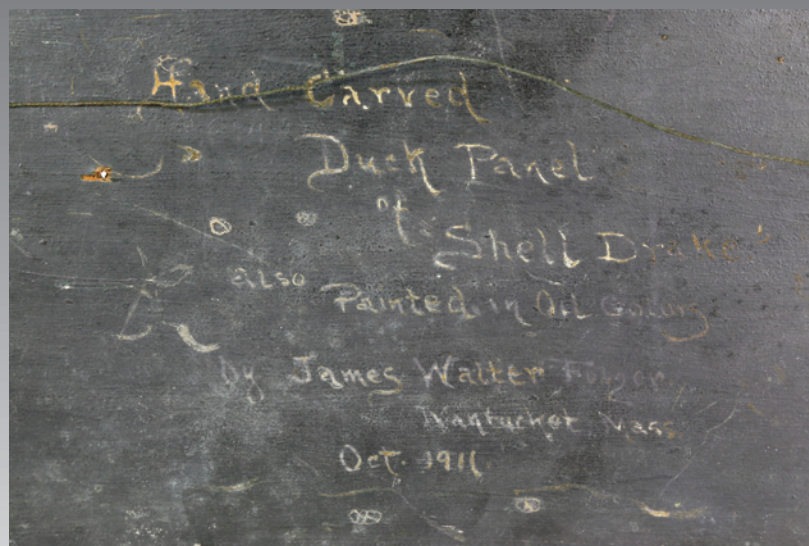 Hand Carved
Duck Panel
of
"Shell Drake."
also
Painted in Oil Colors
by James Walter Folger
Nantucket Mass
Oct. 1911.